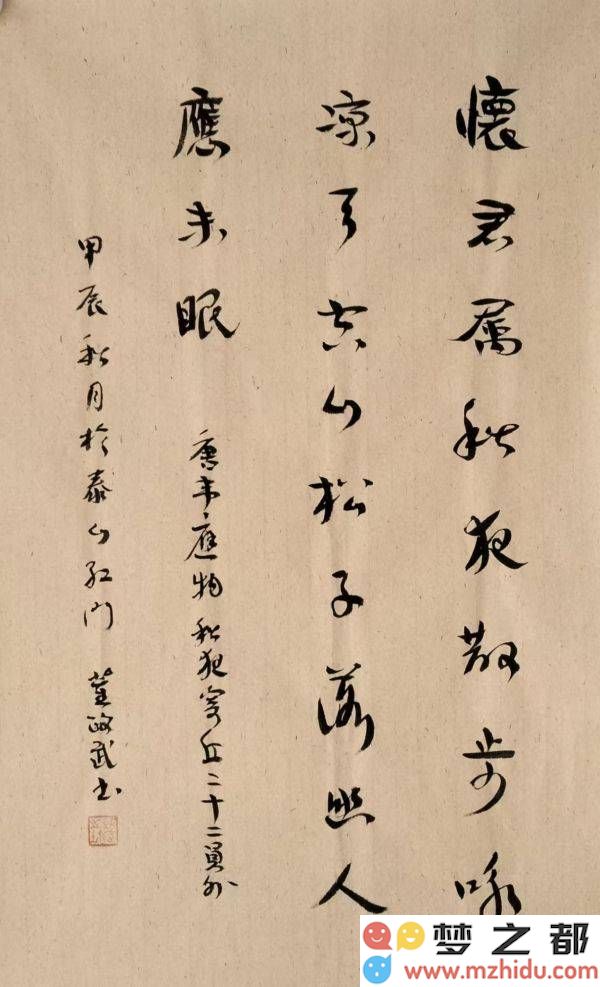 懷君属秋夜散步咏
凉天空山松子落幽人
應未眠
唐韋應物秋夜寄丘二十二員外
甲辰秋月於泰山紅門 董政武书
梦之都
www.mzhidu.com